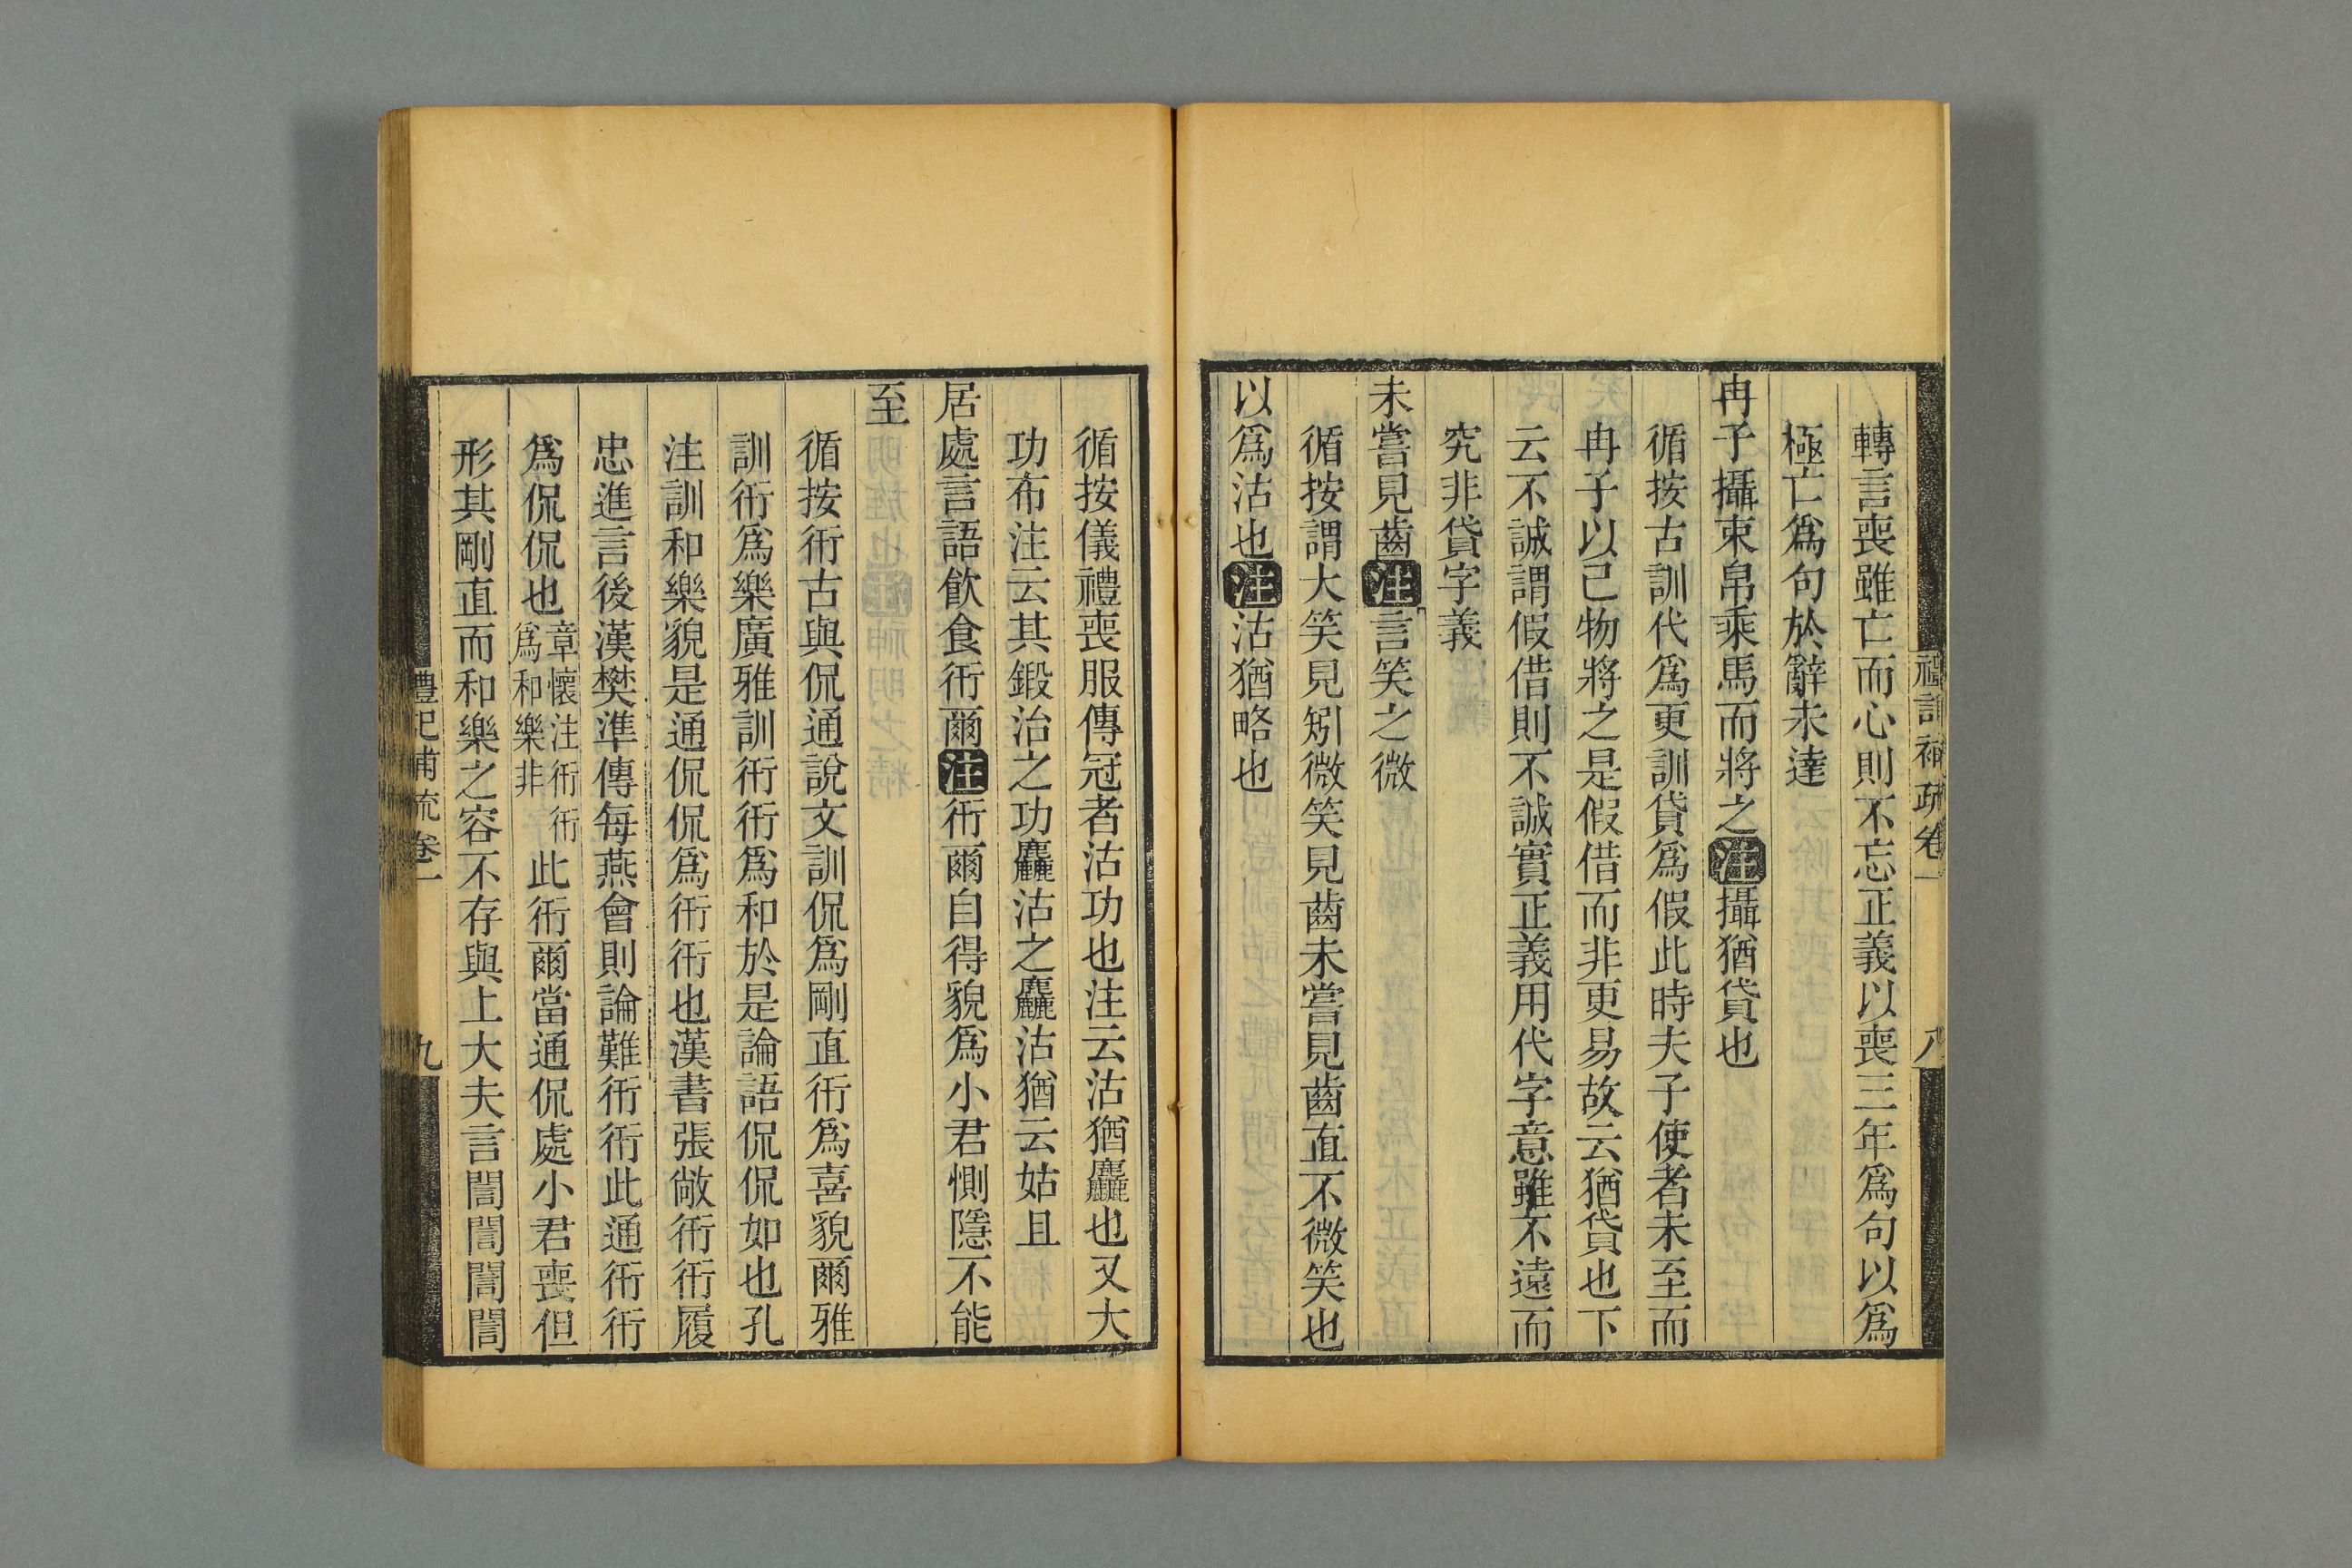 禮記補疏卷一
八
轉言喪雖亡而心則不忘正義以喪三年爲句以爲
極亡爲句於辭未達
冉子攝束帛乘馬而將之注攝猶貸也
循按古訓代爲更訓貸爲假此時夫子使者未至而
冉子以己物將之是假借而非更易故云猶貸也下
云不誠謂假借則不誠實正義用代字意雖不遠而
究非貸字義
未嘗見齒注言笑之微
循按謂大笑見矧微笑見齒未嘗見齒直不微笑也
以爲沽也注沽猶略也
循按儀禮喪服傳冠者沽功也注云沽猶麤也又大
功布注云其鍛治之功麤沽之麤沽猶云姑且
居處言語飲食衎爾注衎爾自得貌爲小君惻隱不能
至
循按衎古與侃通說文訓侃爲剛直衎爲喜貌爾雅
訓衎爲樂廣雅訓衎衎爲和於是論語侃侃如也孔
注訓和樂貌是通侃侃爲衎衎也漢書張敞衎衎履
忠進言後漢樊準傳每燕會則論難衎衎此通衎衎
爲侃侃也章懷注衎衎爲和樂非此衎爾當通侃處小君喪但
形其剛直而和樂之容不存與上大夫言誾誾誾誾
禮記補疏卷一
九